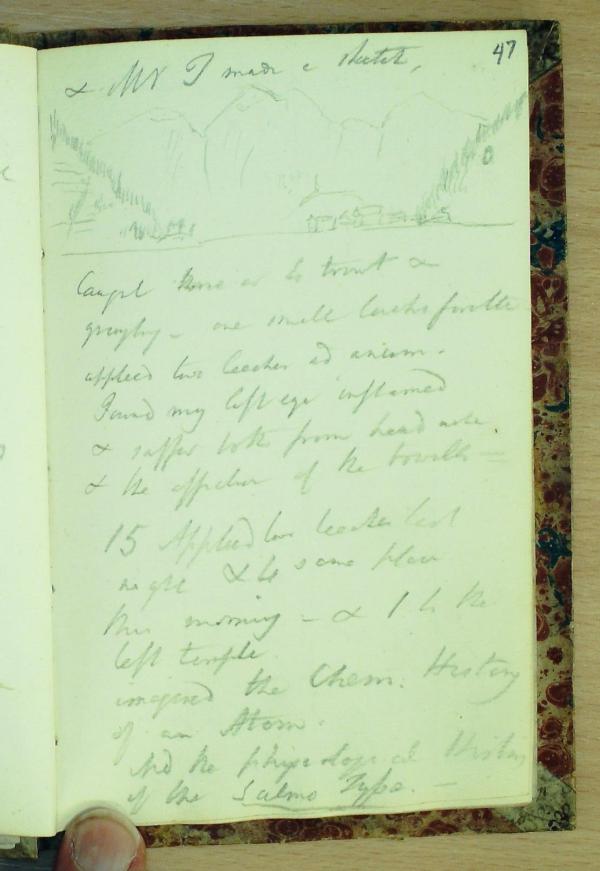 47
& Mr I made a sketch,
Caught three or to trout &
grayling - one small
applied two leeches ad anium.
Found my left eye inflamed
& suffer both from head ache
& the affection of the bowells -
15 Applied two leeches last
night & to same place
this morning - & 1 to the
left temple.
imagined the Chem. History
of an Atom.
And the physiological History
of the Salmo Type. -